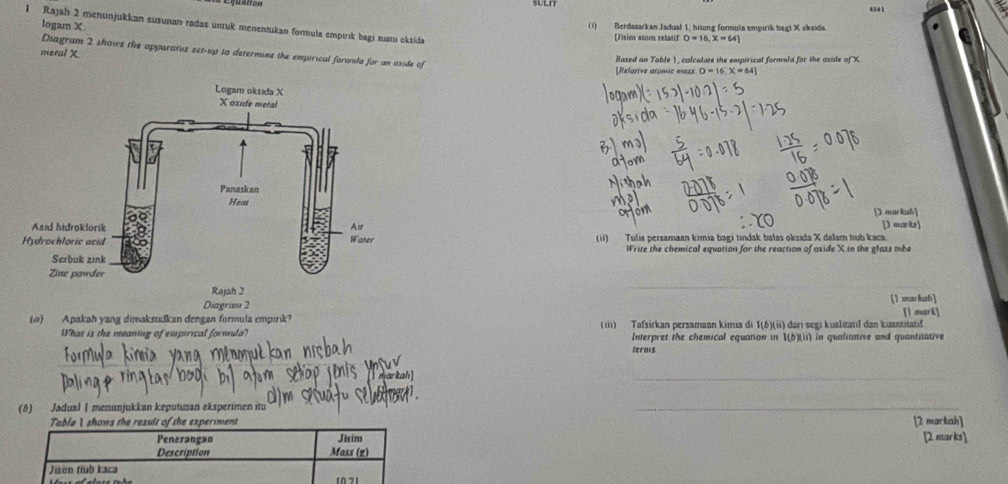 SULIT
4541
1 Rajah 2 menunjukkan susunan radas untuk menentukan formula empirik bagi suatu oksida
logam X.
Diagram 2 shows the apparatus set-up to determine the empirical formula for an oxide of
metal X.
Logam oksida X
X oxide metal
Panaskan
Heat
Asid hidroklorik
Hydrochloric acid
Serbuk zink
Zinc powder
Air
Water
Rajah 2
Diagram 2
(a) Apakah yang dimaksudkan dengan formula empirik?
What is the meaning of empirical formula?
Formula kimia yang menunjukkan nisbah
paling ringkas bagi bil atom setiap jenis unsur
markah]
dlm sesuatu
(b) Jadual 1 menunjukkan keputusan eksperimen itu
Table 1 shows the result of the experiment
Penerangan
Description
Jisim
Mass (g)
Jisim tiub kaca
10.21
(i) Berdasarkan Jadual 1, hitung formula empirik bagi X oksida.
[Jisim atom relatif: O = 16, X = 64]
Based on Table 1, calculate the empirical formula for the oxide of X.
[Relative atomic mass: O = 16, X = 64]
logam X = 15.21 - 10.21 = 5
oksida = 16.46 - 15.21 = 1.25
Bil mol atom 5/64 = 0.078 1.25/16 = 0.078
Nisbah mol atom 0.078/0.078 = 1 0.078/0.078 = 1
∴ XO
[3 markah]
[3 marks]
(ii) Tulis persamaan kimia bagi tindak balas oksida X dalam tiub kaca.
Write the chemical equation for the reaction of oxide X in the glass tube
[1 markah]
[1 mark]
(iii) Tafsirkan persamaan kimia di 1(b)(ii) dari segi kualitatif dan kuantitatif
Interpret the chemical equation in 1(b)(ii) in qualitative and quantitative
terms
[2 markah]
[2 marks]